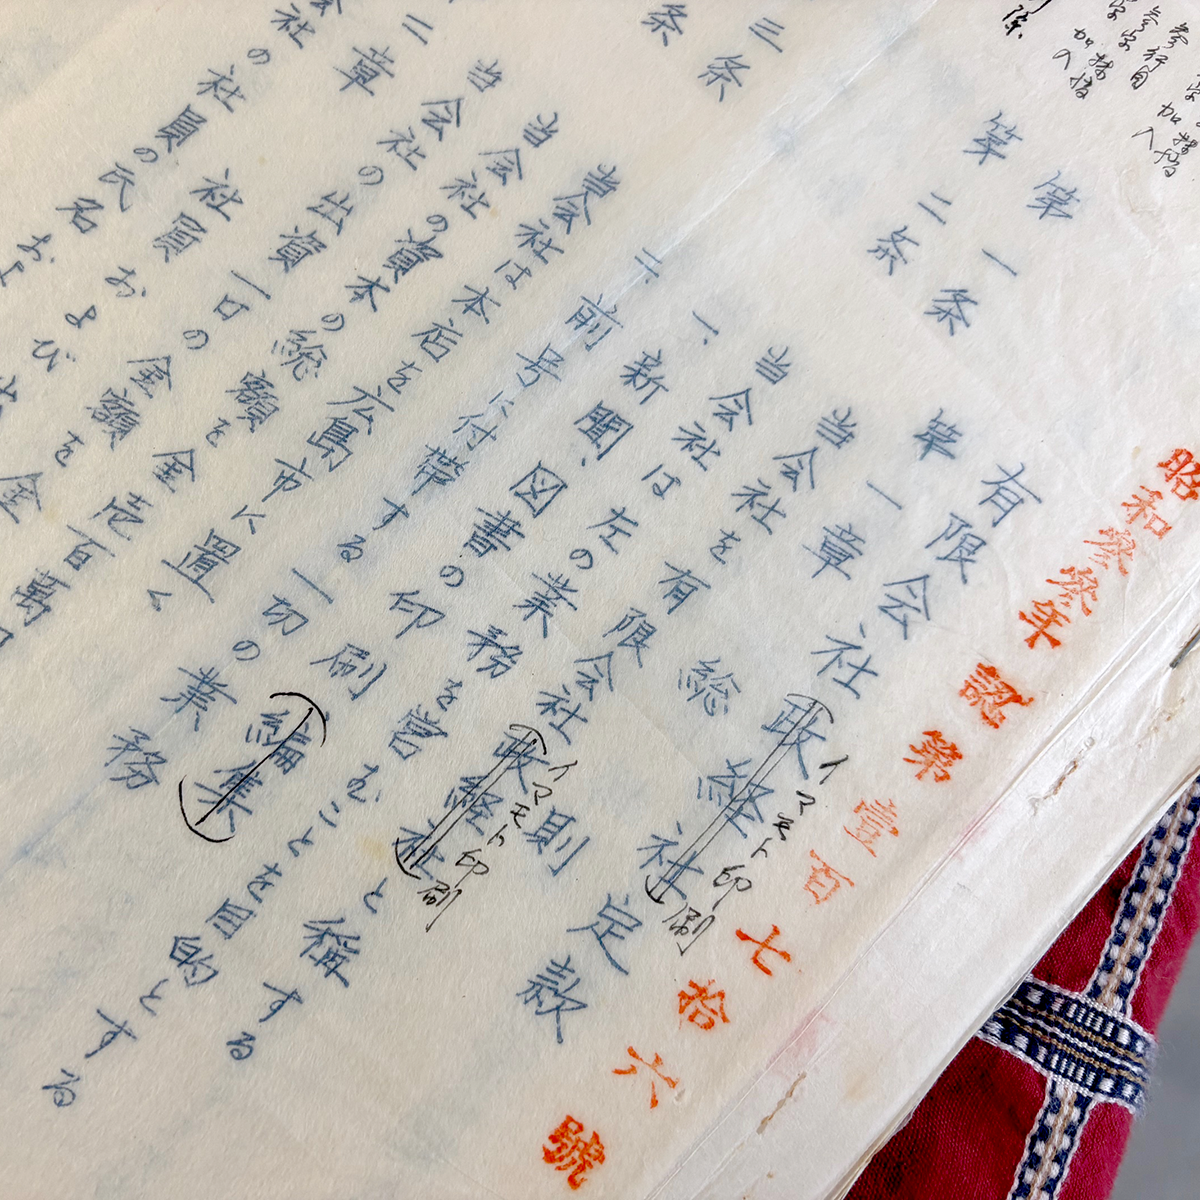 昭和参参年認第壹百七拾六號
有限会社政経社定款
イマモト印刷
第一章 総則
第一条
当会社を有限会社政経社と称する
イマモト印刷
第二条
当会社は左の業務を営むことを目的とする
一、新聞、図書の印刷編集
二、前号に付帯する一切の業務
第三条
当会社は本店を広島市に置く
当会社の資本の総額を金壱百萬
当会社の出資一口の金額を金
二章 社員
社の社員の氏名および
参行目
加入
参字
加入